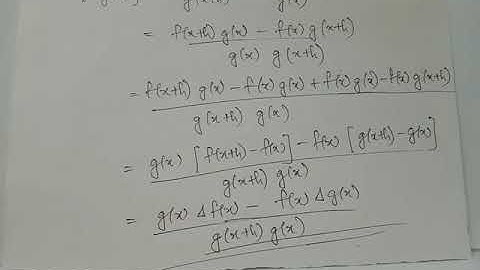 g(x+h) g(x)
= f(x+h) g(x) - f(x) g(x+h)
g(x) g(x+h)
= f(x+h) g(x) - f(x) g(x) + f(x) g(x) - f(x) g(x+h)
g(x+h) g(x)
= g(x) [f(x+h) - f(x)] - f(x) [g(x+h) - g(x)]
g(x+h) g(x)
= g(x) Δ f(x) - f(x) Δ g(x)
g(x+h) g(x)